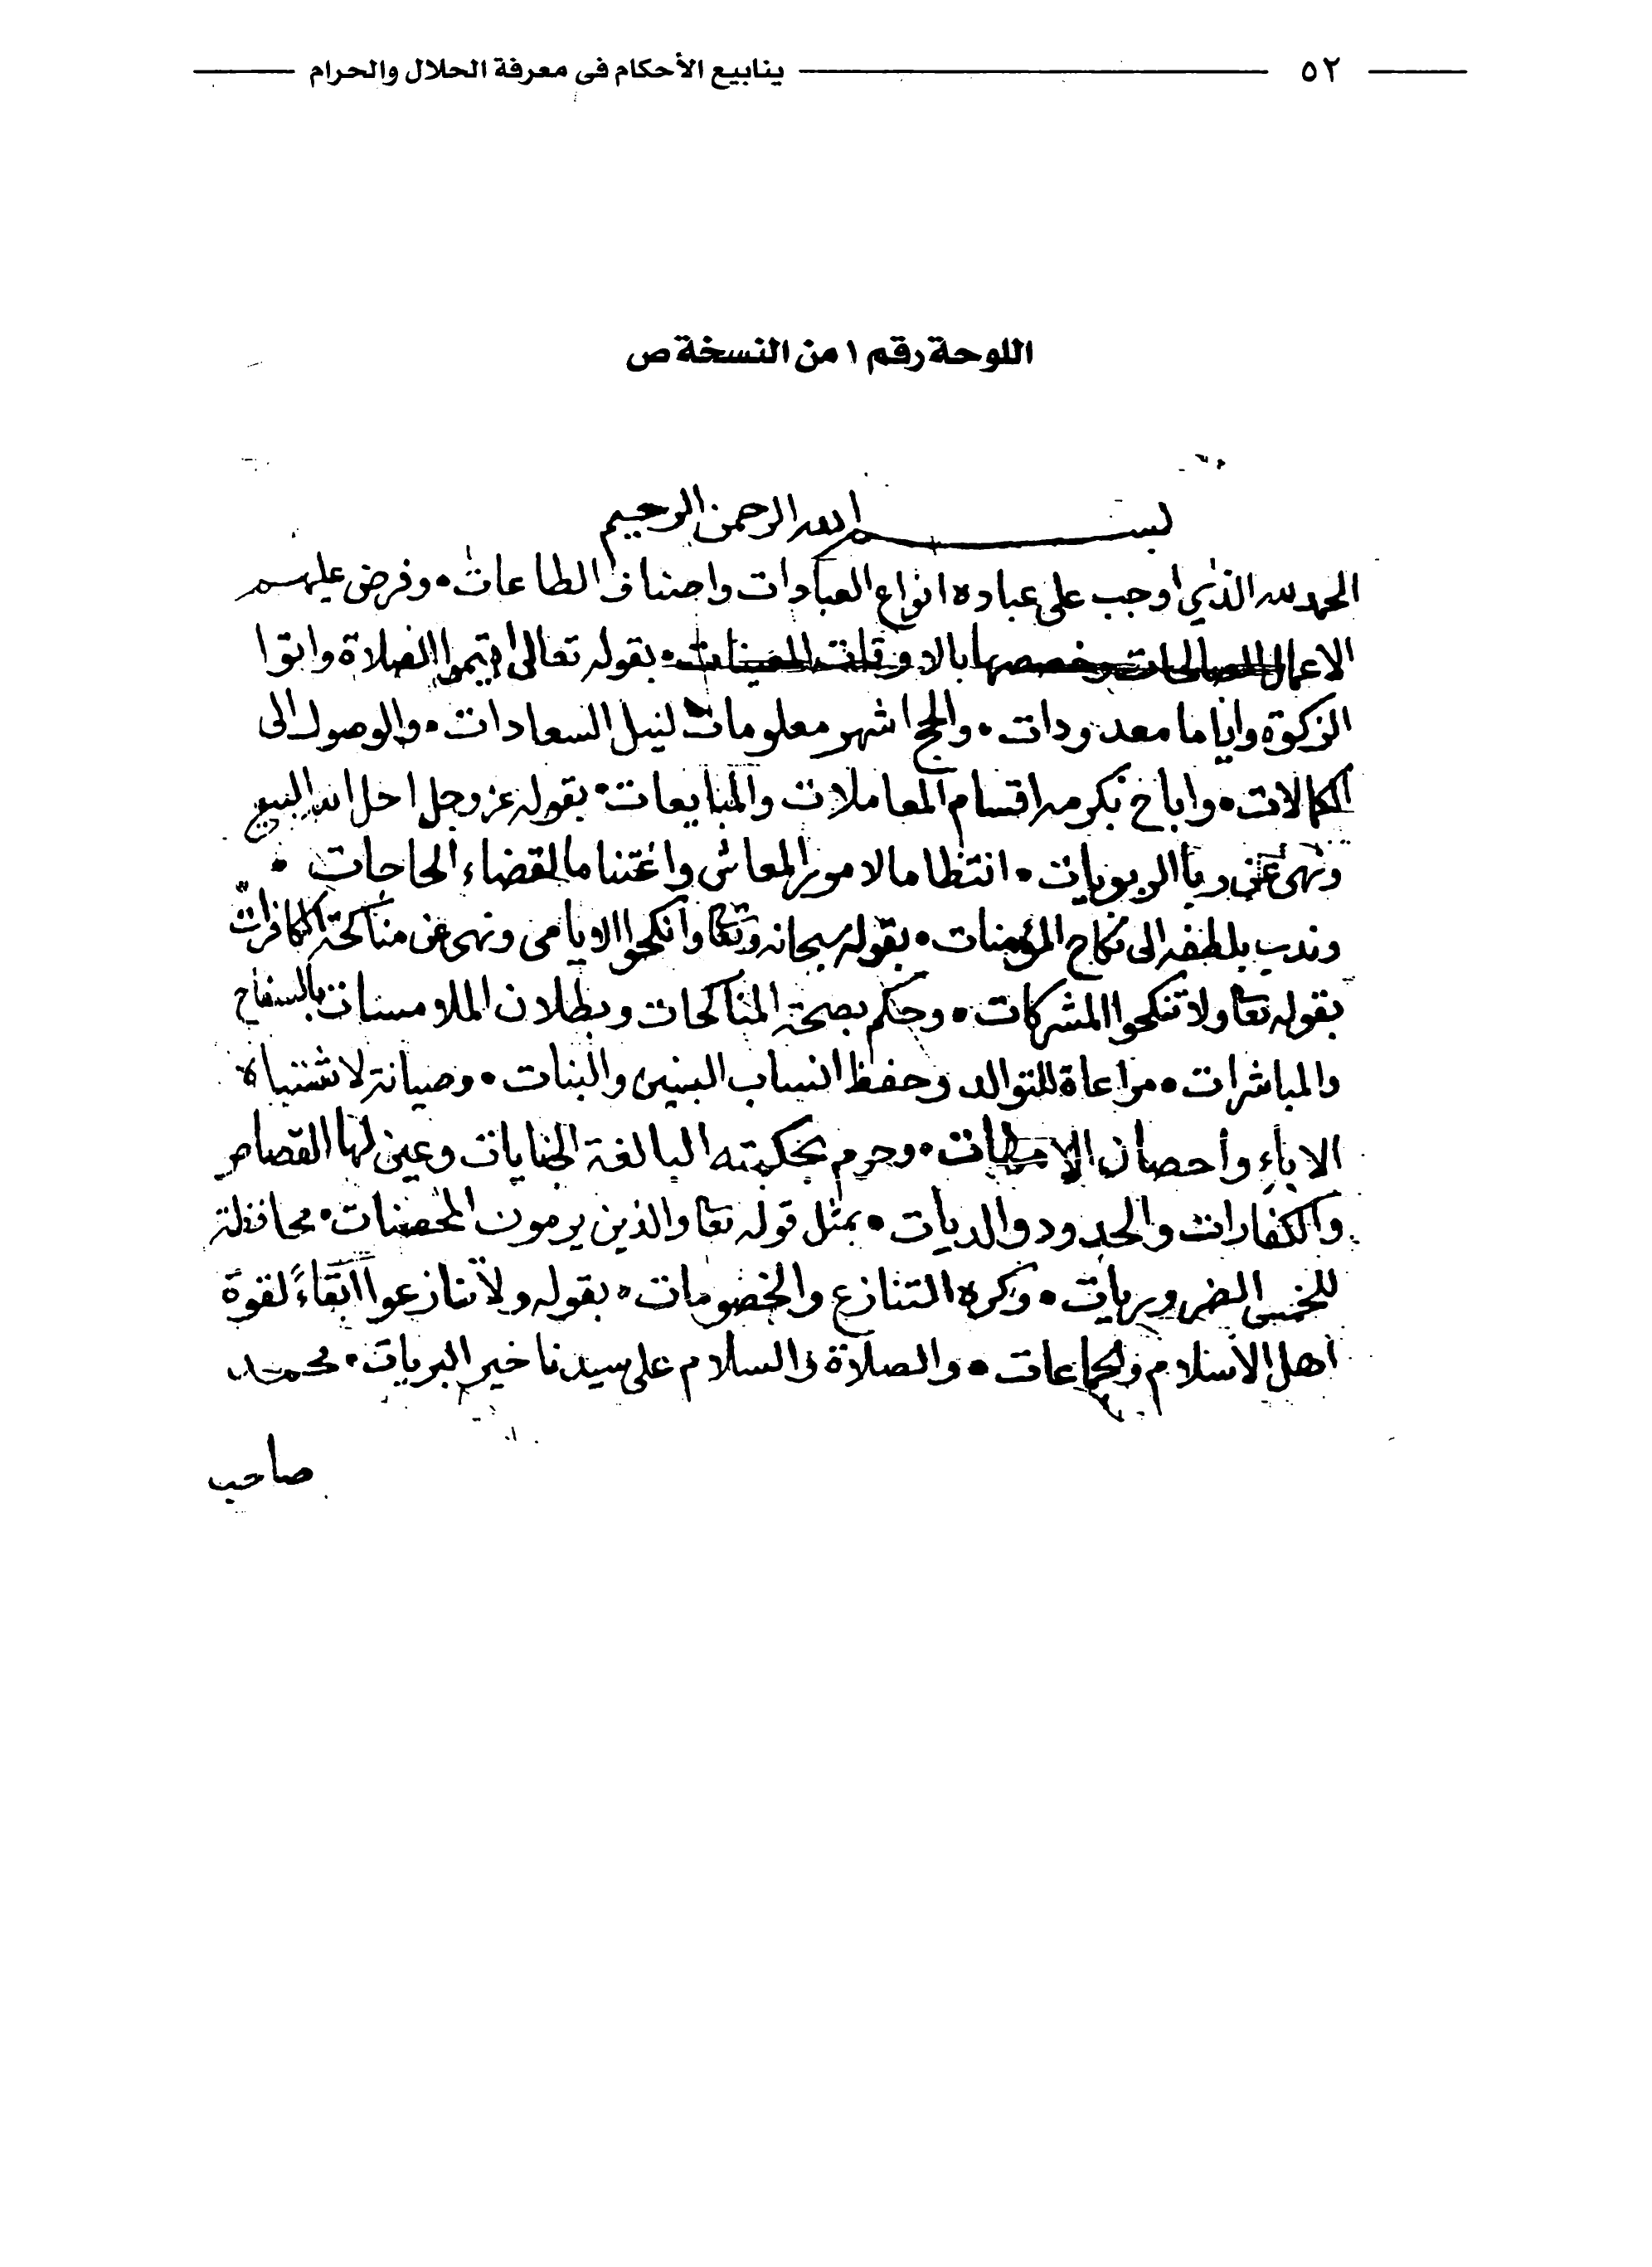 ٥٢ ينابيع الأحكام فى معرفة الحلال والحرام
اللوحة رقم ١ من النسخة ص
بسم الله الرحمن الرحيم
الحمد لله الذي اوجب على عباده انواع العبادات واصناف الطاعات • وفرض عليهم
الاعمال الصالحات وخصصها بالاوقات المعينات • بقوله تعالى اقيموا الصلاة واتوا
الزكوة واياما معدودات • والحج اشهر معلومات لنيل السعادات • والوصول الى
الكمالات • واباح بكرمه اقسام المعاملات والمبايعات • بقوله عز وجل احل الله البيع
ونهى عن ربا الربويات • انتظاما لامور المعاش واغتناما لقضاء الحاجات •
وندب بلطفه الى نكاح المؤمنات • بقوله سبحانه وتعا وانكحوا الايامى ونهى عن مناكحة الكافرات
بقوله تعا ولا تنكحوا المشركات • وحكم بصحة المناكحات وبطلان الملامسات بالسفاح
والمباشرات • مراعاة للتوالد وحفظ انساب البنين والبنات • وصيانة لاشتباه
الاباء واحصان الامهات • وحرم بحكمته البالغة الجنايات وعين لها القصاص
والكفارات والحدود والديات • بمثل قوله تعا والذين يرمون المحصنات • محافظة
للخمس الضروريات • وكره التنازع والخصومات • بقوله ولا تنازعوا ابقاءً لقوة
اهل الاسلام والجماعات • والصلاة والسلام على سيدنا خير البريات • محمد
صاحب